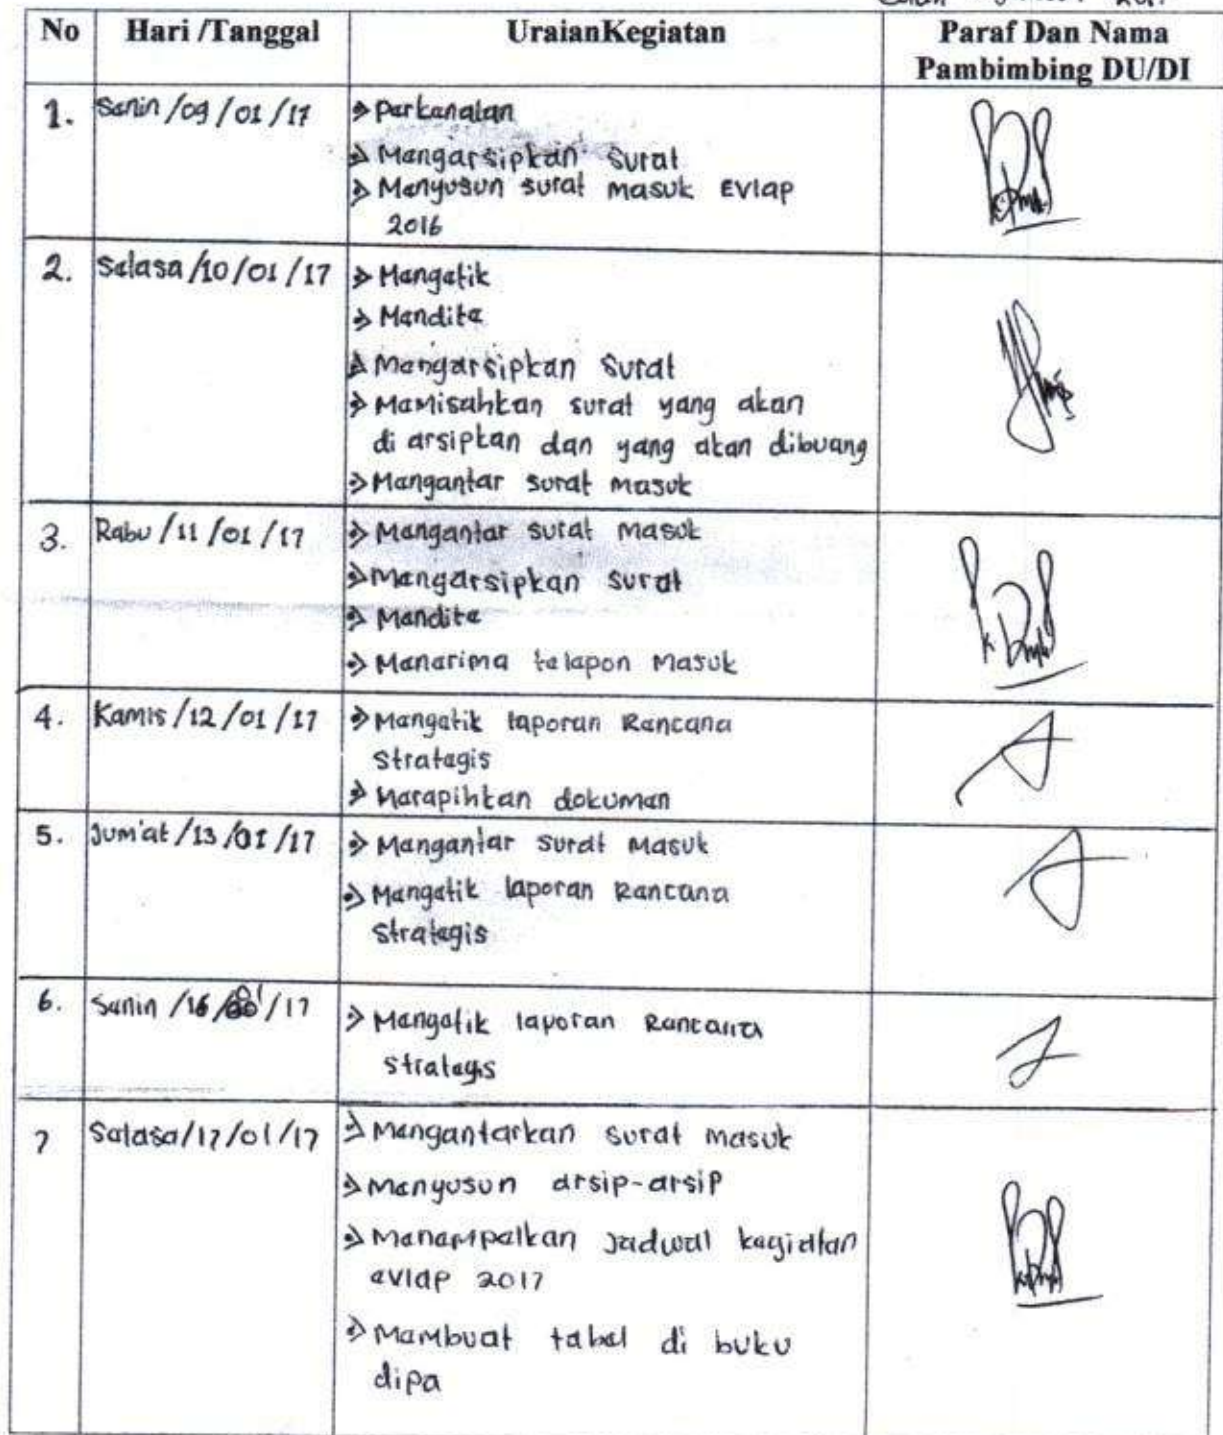 No Hari /Tanggal UraianKegiatan Paraf Dan Nama
Pambimbing DU/DI
1. Senin /09/01/17 Perkenalan
Mengarsipkan surat
Menyusun surat masuk Evlap
2016
2. Selasa/10/01/17 Mengetik
Mendite
Mengarsipkan surat
Memisahkan surat yang akan
di arsipkan dan yang akan dibuang
Mengantar surat masuk
3. Rabu/11/01/17 Mengantar surat masuk
Mengarsipkan surat
Mendite
Menerima telepon masuk
4. Kamis/12/01/17 Mengetik laporan Rencana
Strategis
Merapihkan dokumen
5. Jum'at/13/01/17 Mengantar surat masuk
Mengetik laporan Rencana
Strategis
6. Senin /16/01/17 Mengetik laporan Rencana
strategis
7 Selasa/17/01/17 Mengantarkan surat masuk
Menyusun arsip-arsip
Menempelkan jadwal kegiatan
evlap 2017
Membuat tabel di buku
dipa